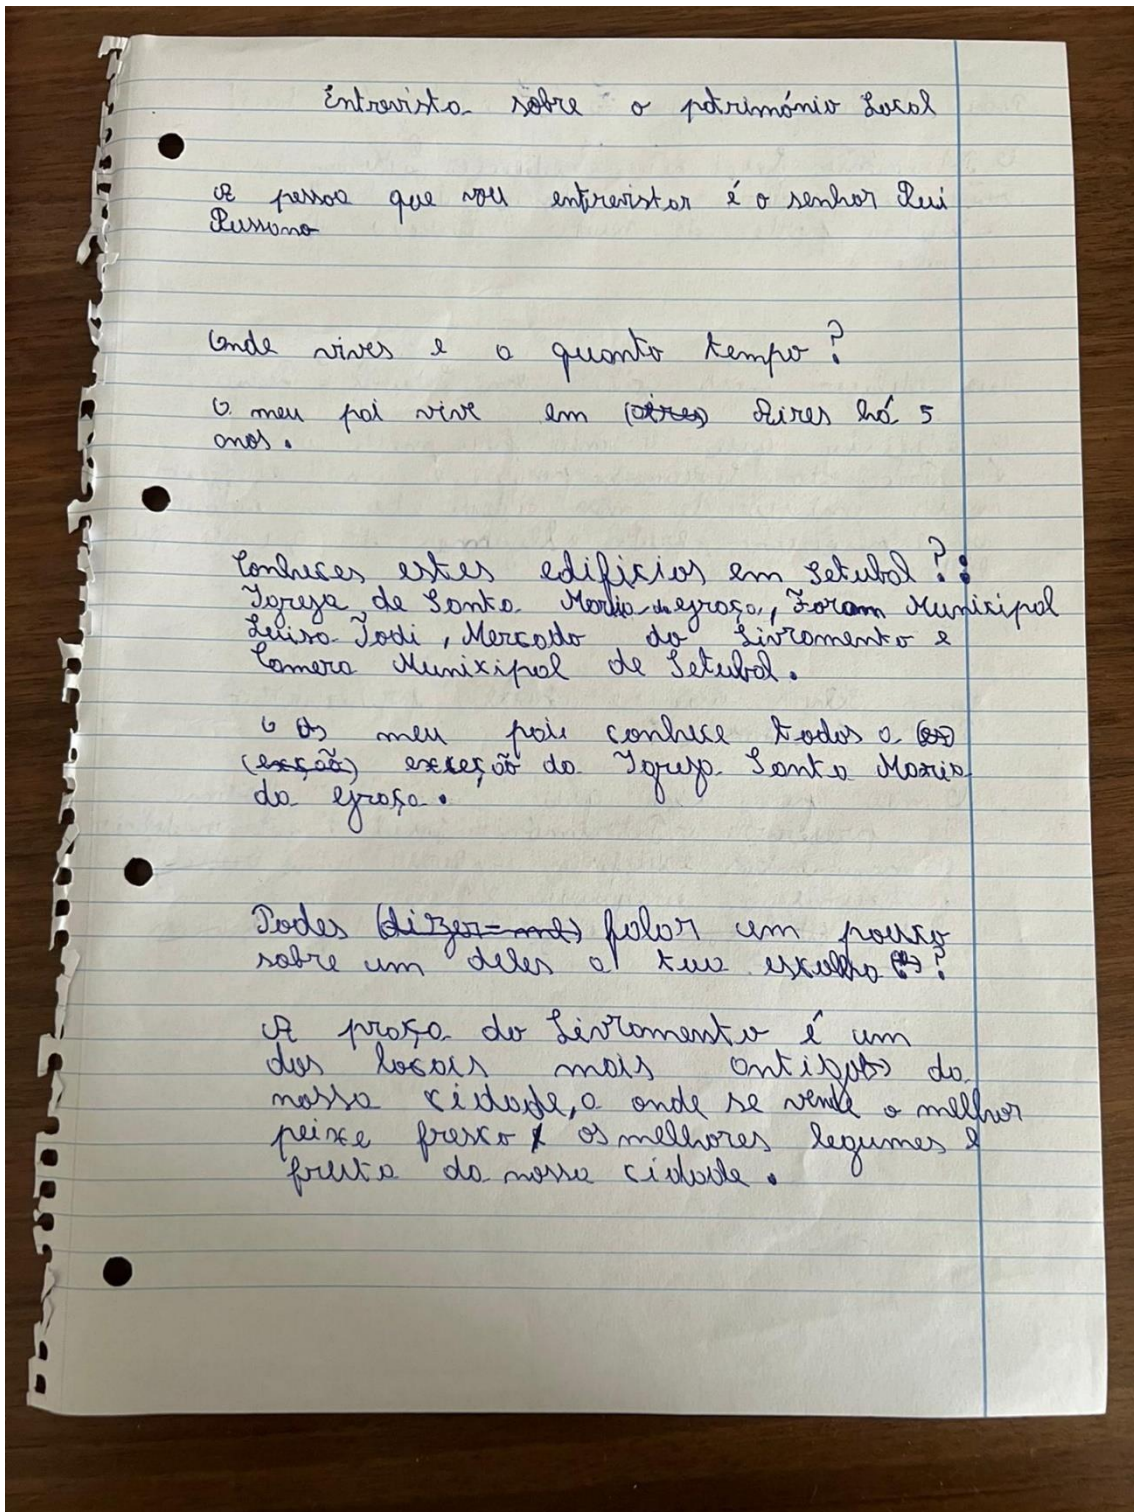 Entrevista sobre o património Local
A pessoa que vou entrevistar é o senhor Rui
Russano
Onde vives e a quanto tempo?
O meu pai vive em (aires) Aires há 5
anos.
Conheces estes edificios em Setubal?:
Igreja de Santa Maria da Graça, Foram Municipal
Luisa Todi, Mercado do Livramento e
Camera Municipal de Setubal.
O meu pai conhece todos a (es)
(exção) exceção da Igreja Santa Maria
da Graça.
Podes (dizer-me) falar um pouco
sobre um deles a tua escolha?
A praça do Livramento é um
dos locais mais antigos da
nossa cidade, a onde se vende o melhor
peixe fresco os melhores legumes e
fruta da nossa cidade.